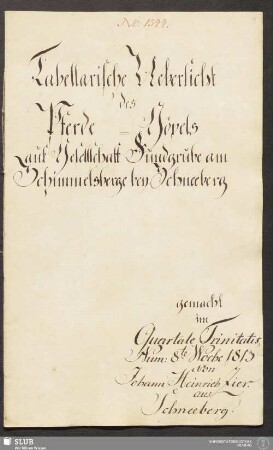 No: 1394.
Tabellarische Uebersicht
des
Pferde = Göpels
auf Gesellschaft Fundgrube am
Schimmelsberge bey Schneeberg
gemacht
im
Quartale Trinitatis,
Num: 8te Woche 1813
von
Johann Heinrich
aus
Schneeberg.
SLUB
Wir führen Wissen.